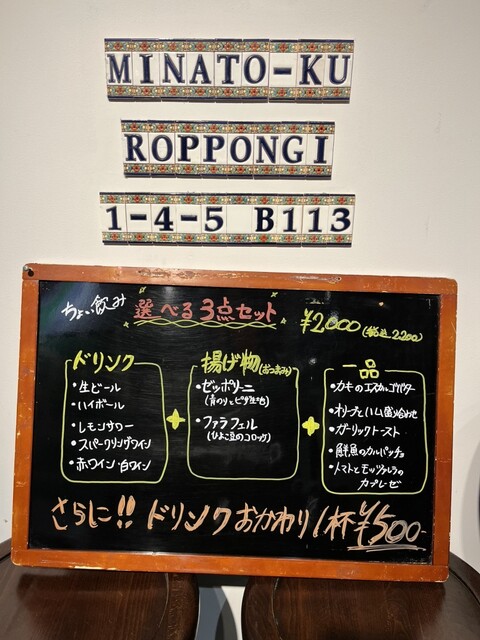 MINATO-KU
ROPPONGI
1-4-5 B113
ちょい飲み 選べる3点セット ¥2,000 (税込 2200)
ドリンク
・生ビール
・ハイボール
・レモンサワー
・スパークリングワイン
・赤ワイン・白ワイン
+
揚げ物(おつまみ)
・ゼッポリーニ
(青のりとピザ生地)
・ファラフェル
(ひよこ豆のコロッケ)
+
一品
・カキのエスカルゴバター
・オリーブとハム盛り合わせ
・ガーリックトースト
・鮮魚のカルパッチョ
・トマトとモッツァレラの
カプレーゼ
さらに!! ドリンクおかわり1杯¥500-